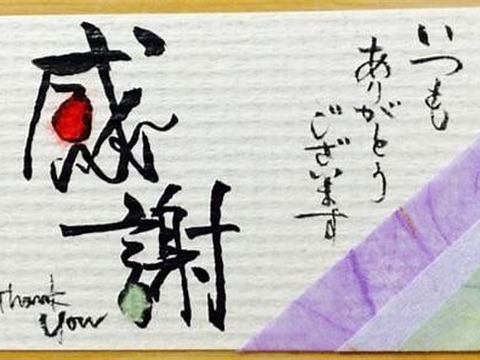 いつも
ありがとう
ございます
感
謝
Thank
you